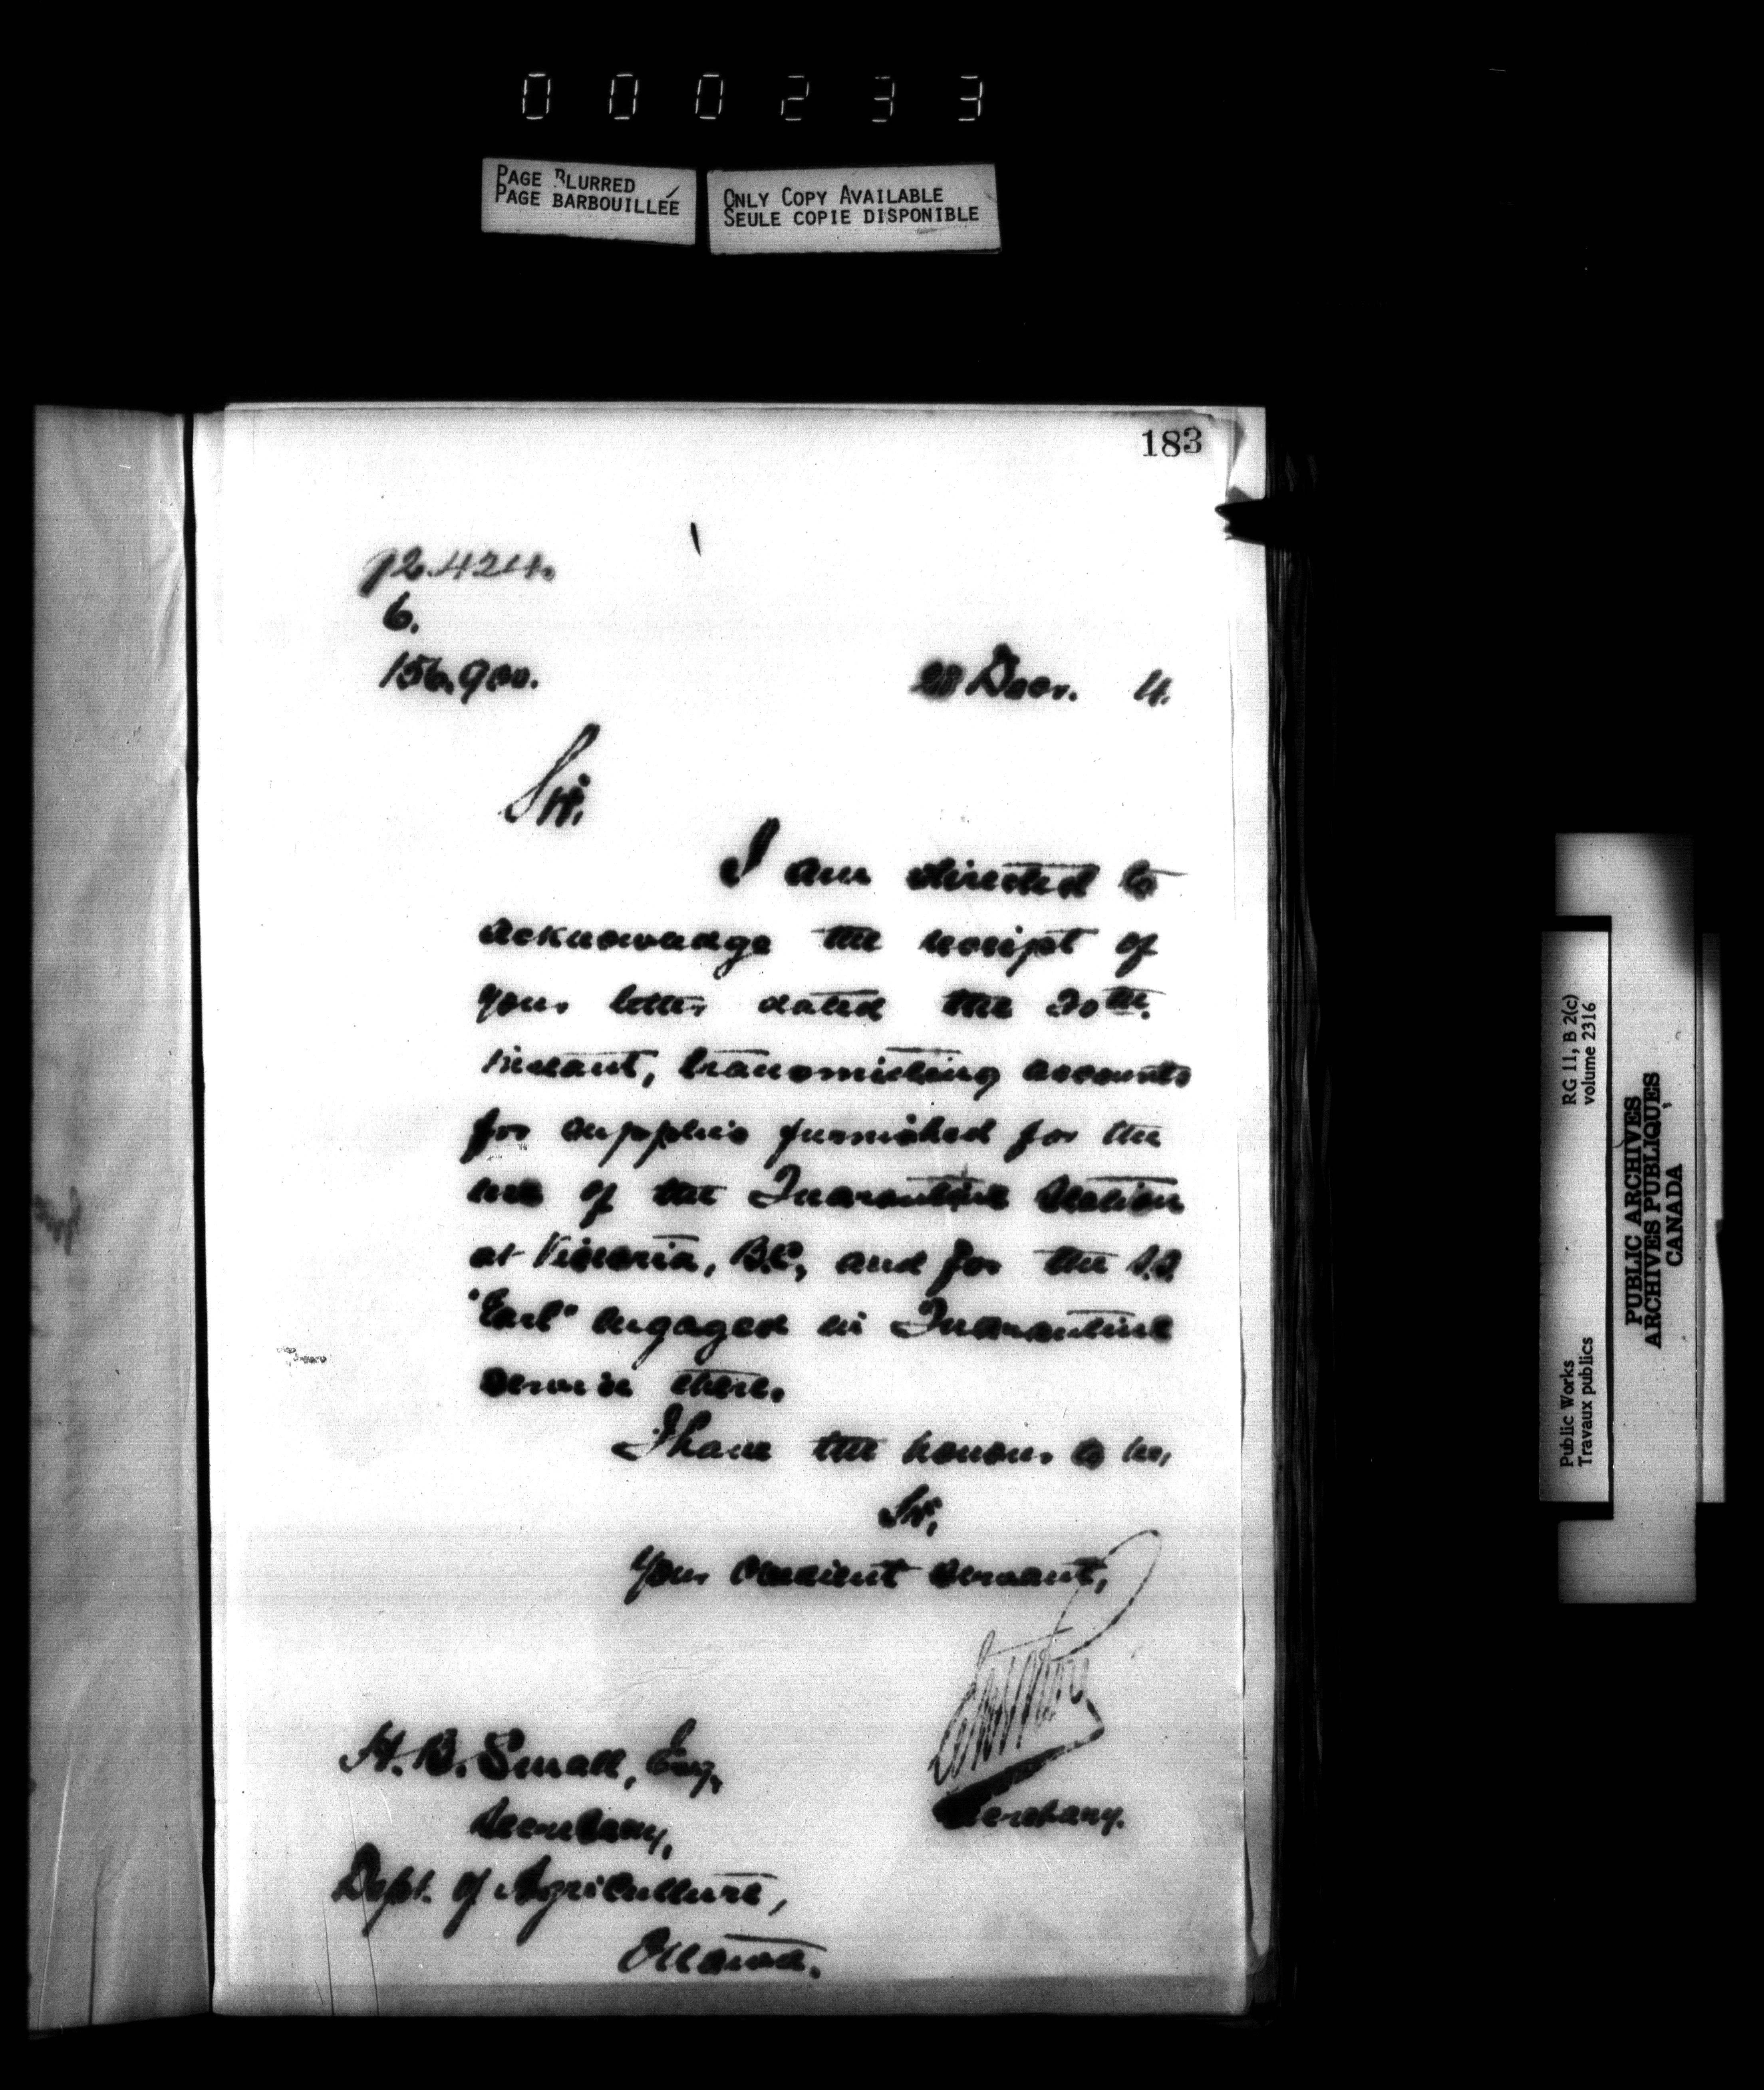 000233
PAGE BLURRED
PAGE BARBOUILLÉE
ONLY COPY AVAILABLE
SEULE COPIE DISPONIBLE
183
6.
156.900.
28 Decr. 4.
Sir,
I am directed to
acknowledge the receipt of
your letter dated the 20th.
instant, transmitting accounts
for supplies furnished for the
use of the Quarantine Station
at Victoria, B.C., and for the S.S.
"Earl" engaged in Quarantine
service there.
I have the honour to be,
Sir,
Your obedient servant,
Secretary.
H. B. Small, Esq.,
Secretary,
Dept. of Agriculture,
Ottawa.
Public Works
Travaux publics
RG 11, B 2(c)
volume 2316
PUBLIC ARCHIVES
ARCHIVES PUBLIQUES
CANADA